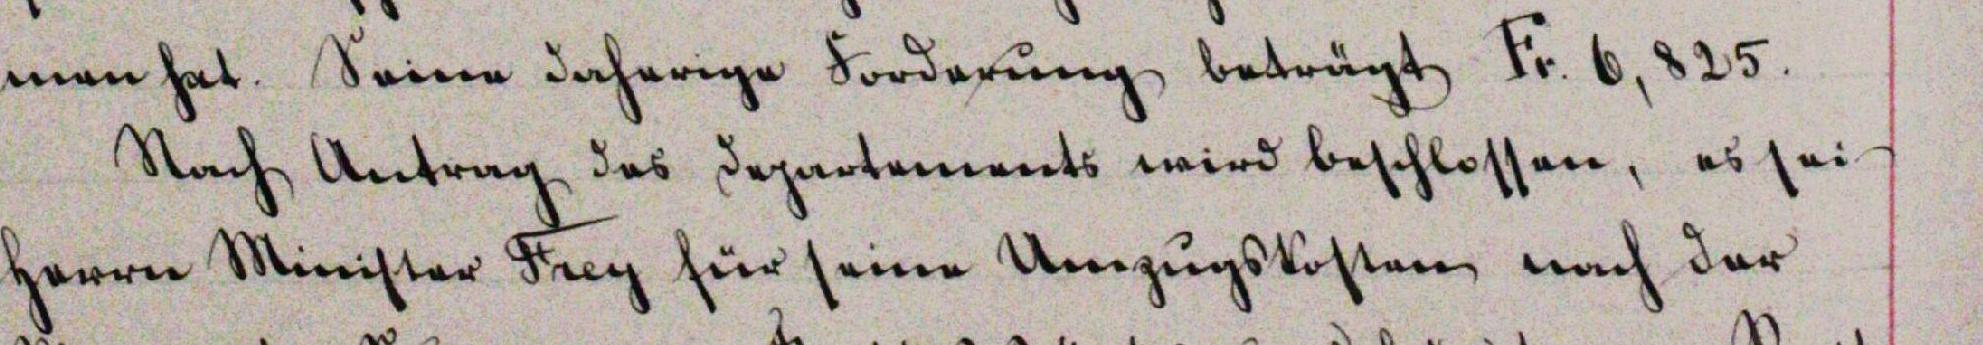 men hat. Seine daherige Forderung beträgt Fr. 6,825.
Nach Antrag des Departements wird beschlossen, es sei
Herrn Minister Frey für seine Umzugskosten nach der